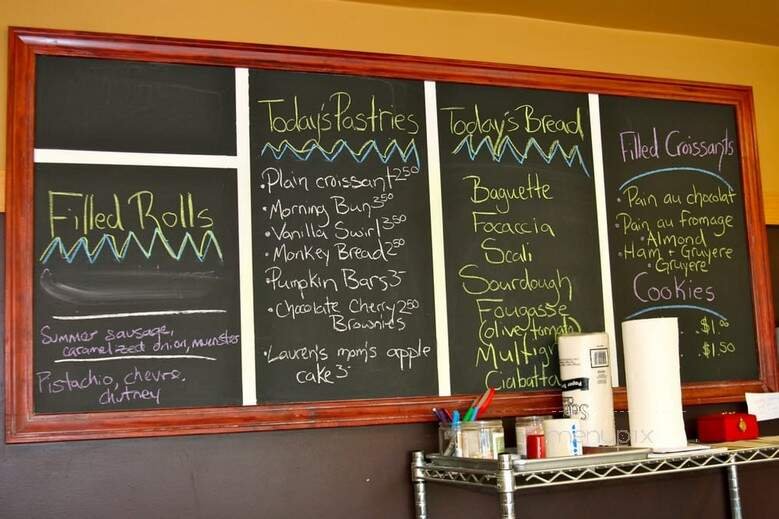 Filled Rolls
Summer sausage,
caramelized onion, muenster
Pistachio, chevre,
chutney
Today's Pastries
• Plain croissant 2.50
• Morning Bun 3.50
• Vanilla Swirl 3.50
• Monkey Bread 2.50
• Pumpkin Bars 3-
• Chocolate Cherry 2.50
Brownies
• Lauren's mom's apple
cake 3-
Today's Bread
Baguette
Focaccia
Scali
Sourdough
Fougasse
(olive, tomato)
Ciabatta
Filled Croissants
• Pain au chocolat
• Pain au fromage
• Almond
• Ham + Gruyere
• Gruyere
Cookies
. $1.00
. $1.50
menupix